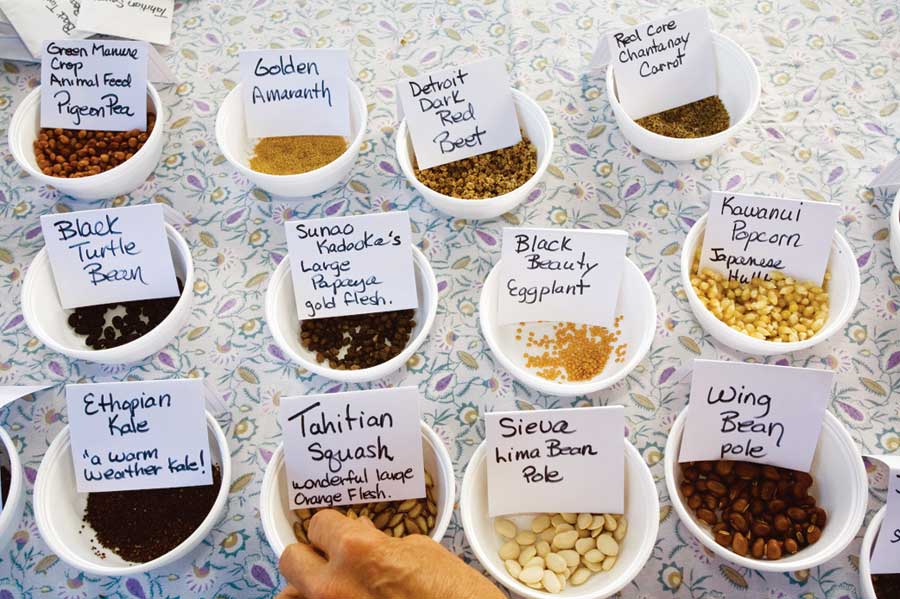 Tahitian
Green Manure
Crop
Animal Feed
Pigeon Pea
Golden
Amaranth
Detroit
Dark
Red
Beet
Red Core
Chantanay
Carrot
Black
Turtle
Bean
Sunao
Kadooka's
Large
Papaya
gold flesh.
Black
Beauty
Eggplant
Kawanui
Popcorn
Japanese
Hulls
Ethopian
Kale
"a warm
weather Kale!
Tahitian
Squash
wonderful large
Orange Flesh.
Sieva
Lima Bean
Pole
Wing
Bean
pole